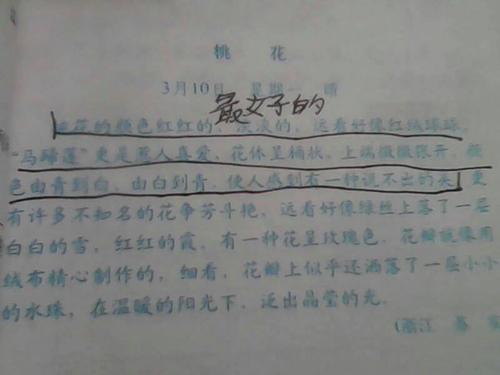 桃 花
3月10日 星期 晴
最好的
花的颜色红红的、淡淡的，远看好像红绒球球。
“马蹄莲”更是惹人喜爱，花体呈桶状，上端微微张开，颜
色由青到白，由白到青，使人感到有一种说不出的美。更
有许多不知名的花争芳斗艳，远看好像绿丝上落了一层
白白的雪，红红的霞。有一种花呈玫瑰色，花瓣就像用
绒布精心制作的，细看，花瓣上似乎还洒落了一层小小
的水珠，在温暖的阳光下，泛出晶莹的光。
(浙江